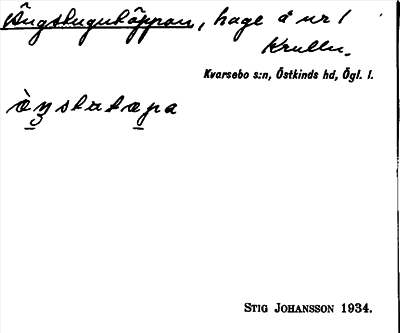 Ängstugutäppan, hage å nr 1
Krullu.
Kvarsebo s:n, Östkinds hd, Ögl. l.
STIG JOHANSSON 1934.